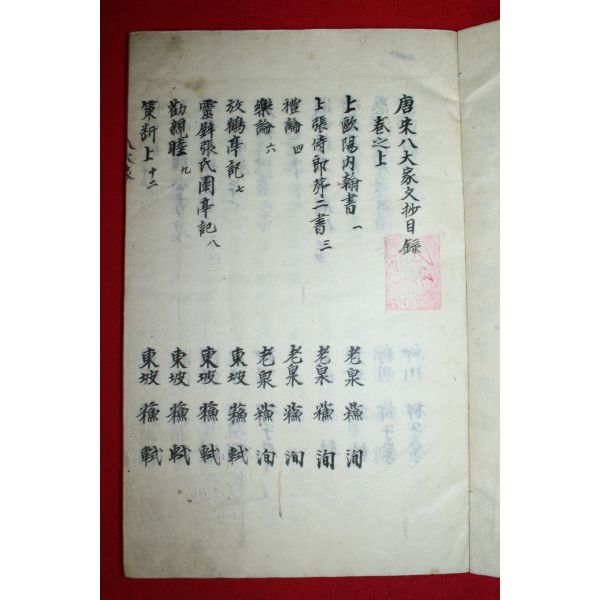 唐宋八大家文抄目錄
卷之上
上歐陽內翰書 一 老泉 蘓洵
上張侍郎苐二書 三 老泉 蘓洵
禮論 四 老泉 蘓洵
樂論 六 老泉 蘓洵
放鶴亭記 七 東坡 蘓軾
靈壁張氏園亭記 八 東坡 蘓軾
勸親睦 九 東坡 蘓軾
策斷上 十二 東坡 蘓軾
八大家